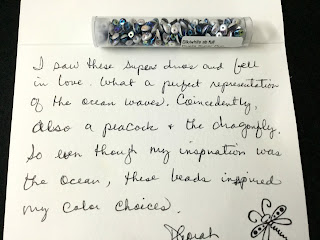 I saw these super duos and fell
in love. What a perfect representation
of the ocean waves. Coincedently,
also a peacock & the dragonfly.
So even though my inspiration was
the ocean, these beads inspired
my color choices.